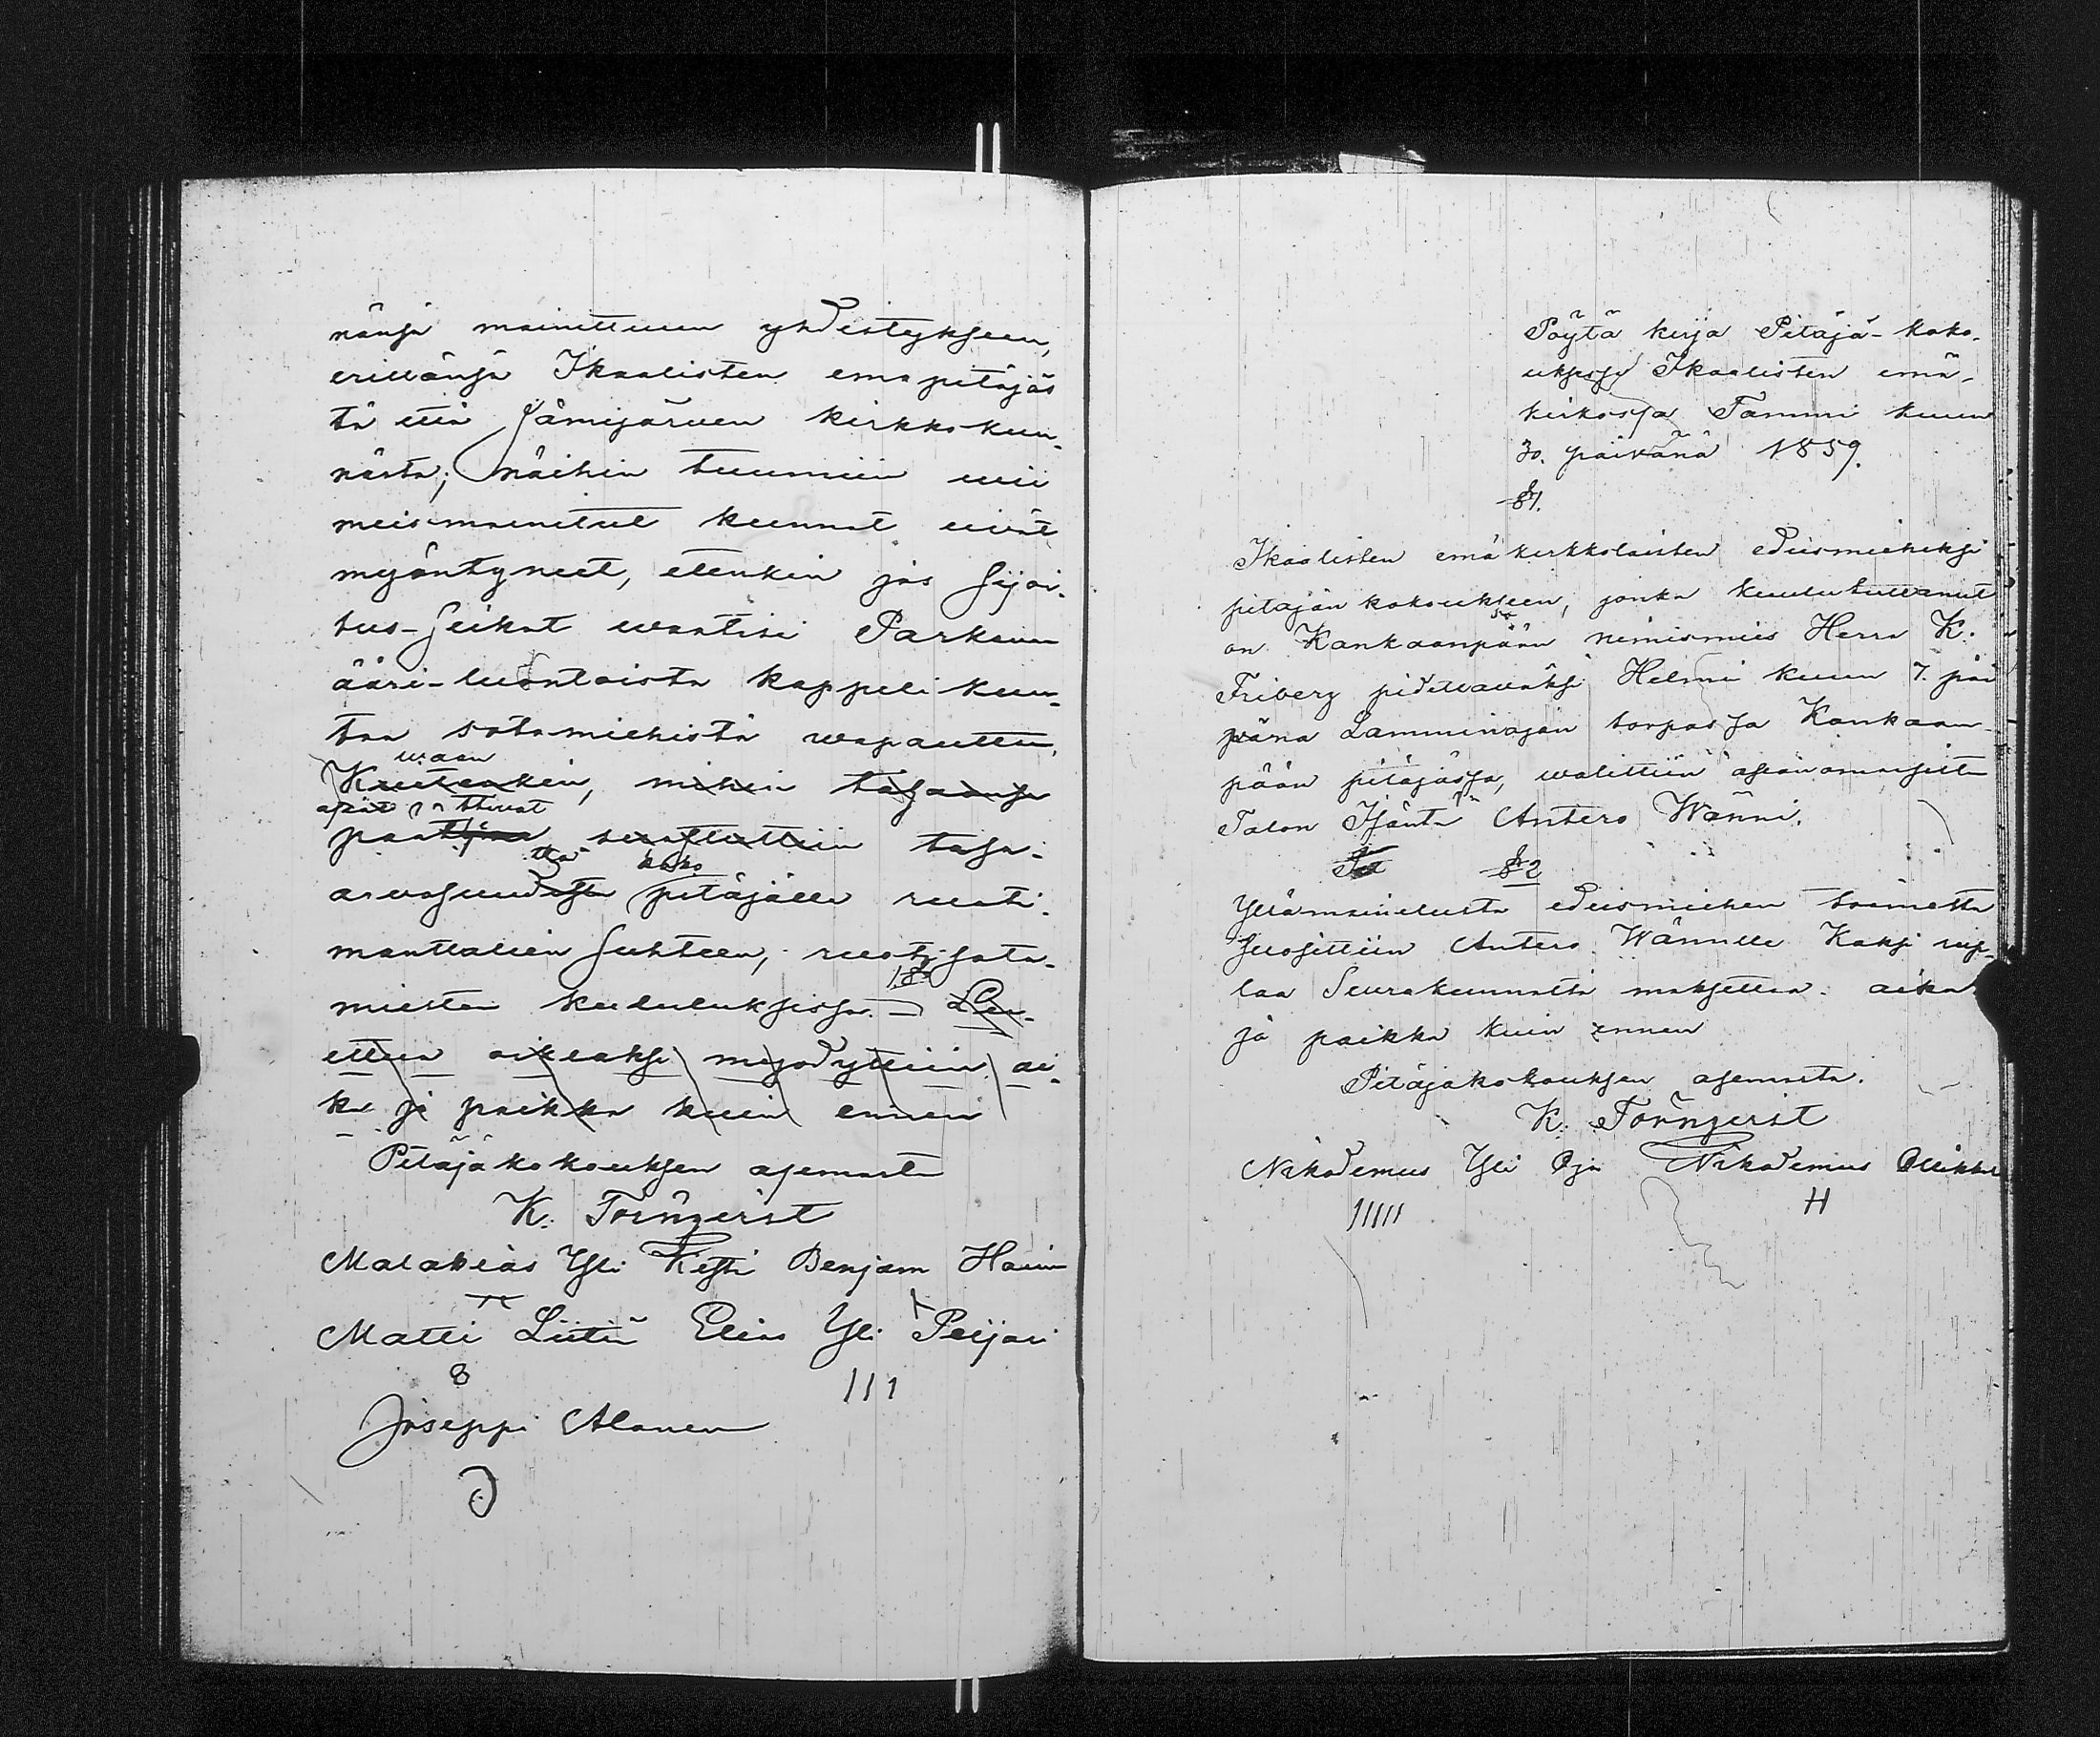 nänsä mainittuun yhdistykseen,
erillänsä Ikaalisten emäpitäjäs
tä että Jämijärwen kirkkokun-
nasta; näihin tuumiin
meismainitut kunnat eiwät
myöntyneet, etenkin jos sijoi-
tus-seikat waatisi Parkanon
ääri-luontoista kappelikun-
taa sotamiehistä wapautten,
waan
Kuitenkin, mihin tasaansa
asiat
suostuttiin tasa-
koko
pitäjälle ruoti-
manttalien suhteen, ruotisota-
miesten kulutuksissa
ettua oikeaksi myödyttiin. ai-
ka ja paikka kuin ennen
Pitäjäkokouksen asemasta
K. Törnqvist
Malakias Yli Kesti Benjam
Matti Liitii Elias Yli Peijari
8 III
Joseppi Alanen
Pöytä kirja Pitäjä-koko-
uksessa Ikaalisten emä-
kirkossa Tammi kuun
30. päivänä 1859.
§1.
Ikaalisten emäkirkkolaisten edusmieheksi
pitäjän kokoukseen, jonka kuuluttuwanut
on Kankaanpään nimismies Herra K.
Friberg pidettäwäksi Helmi kuun 7. päi
wänä Lamminojan torpassa Kankaan-
pään pitäjässä, walittiin asianomaisitta
Talon Isäntä Antero Wänni.
§2
Yllämainitusta edusmiehen toimesta
suosittiin Antero Wännille Kaksi rup-
laa Seurakunnalta maksettaa. aika
ja paikka kuin ennen
Pitäjäkokouksen asemasta.
K. Törnqvist
Nikodemus Yli Oja Nikodemus Ollikkala
IIIII H